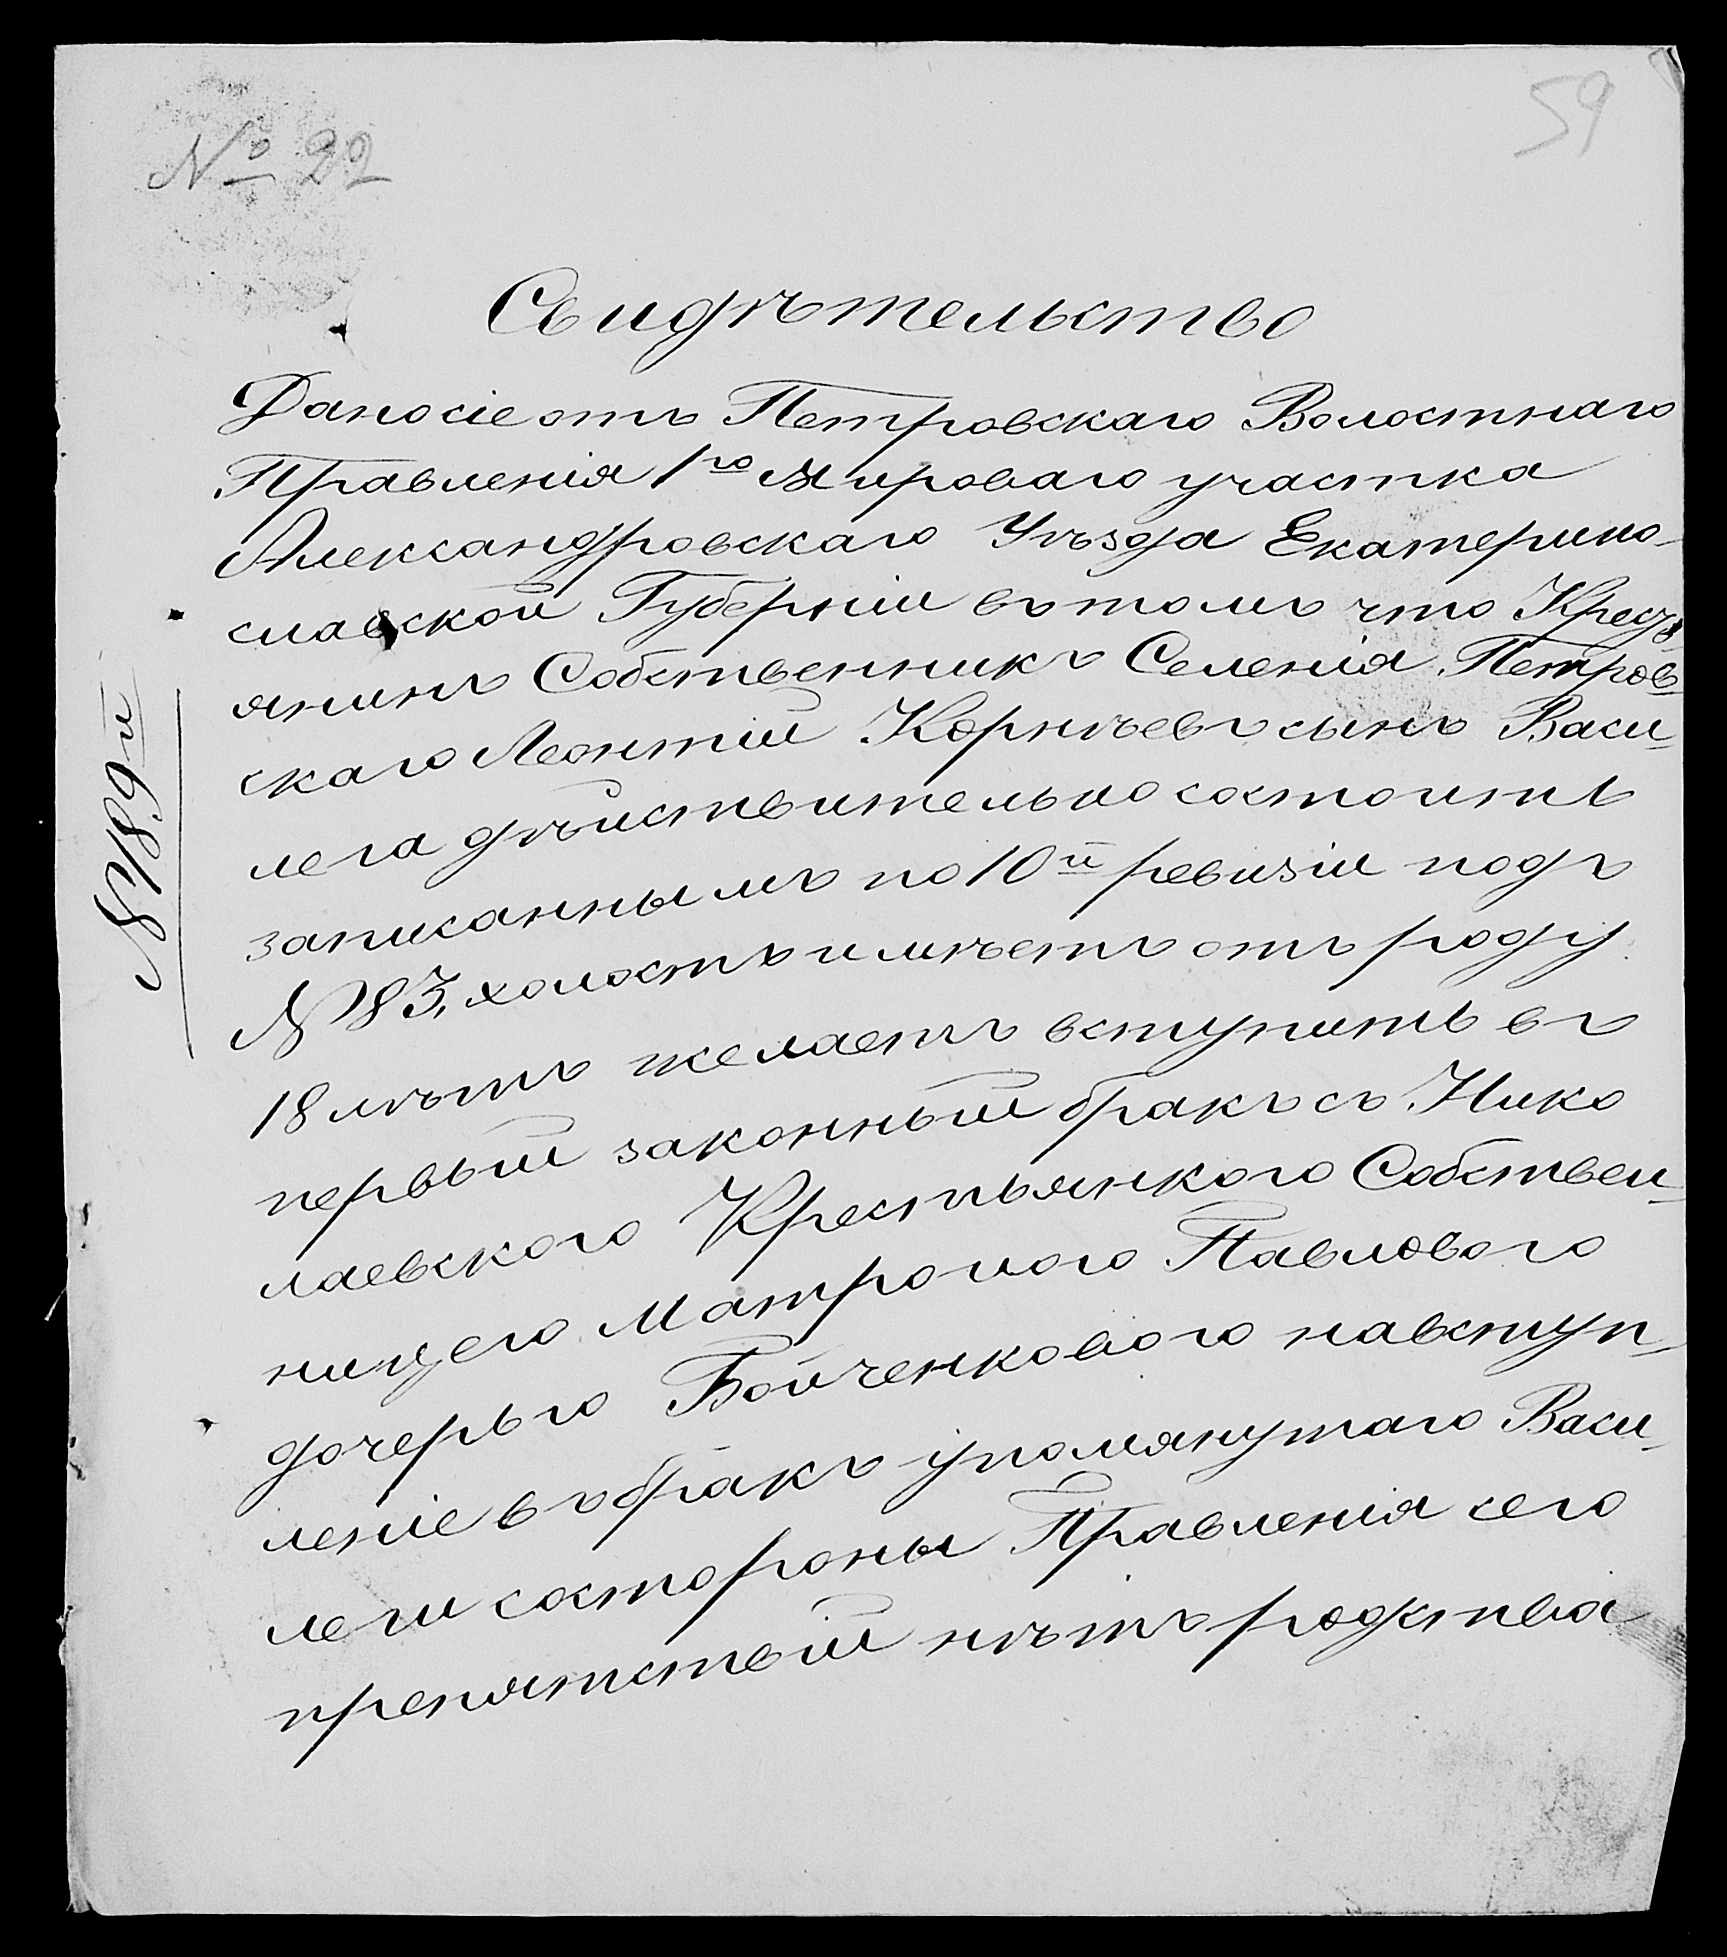 № 22
59
Свидѣтельство
Дано сіе отъ Петровскаго Волостнаго
Правленія 1го Мироваго участка
Александровскаго Уѣзда Екатерино-
славской Губерніи въ томъ что Кресть-
янинъ Собственникъ Селенія Петров-
скаго Леонтій Корнѣевъ сынъ Васи-
лега дѣйствительно состоитъ
записаннымъ по 10й ревизіи подъ
№ 83, холостъ имѣетъ отъ роду
18 лѣтъ желаетъ вступить въ
первый законный бракъ съ Нико
лаевского Крестьянкого Собствен-
ницего Матроного Павлового
дочерью Бойченкового на вступ-
леніе въ бракъ упомянутаго Васи-
леги состороны Правленія сего
препятствій нѣтъ родства
№ 189й